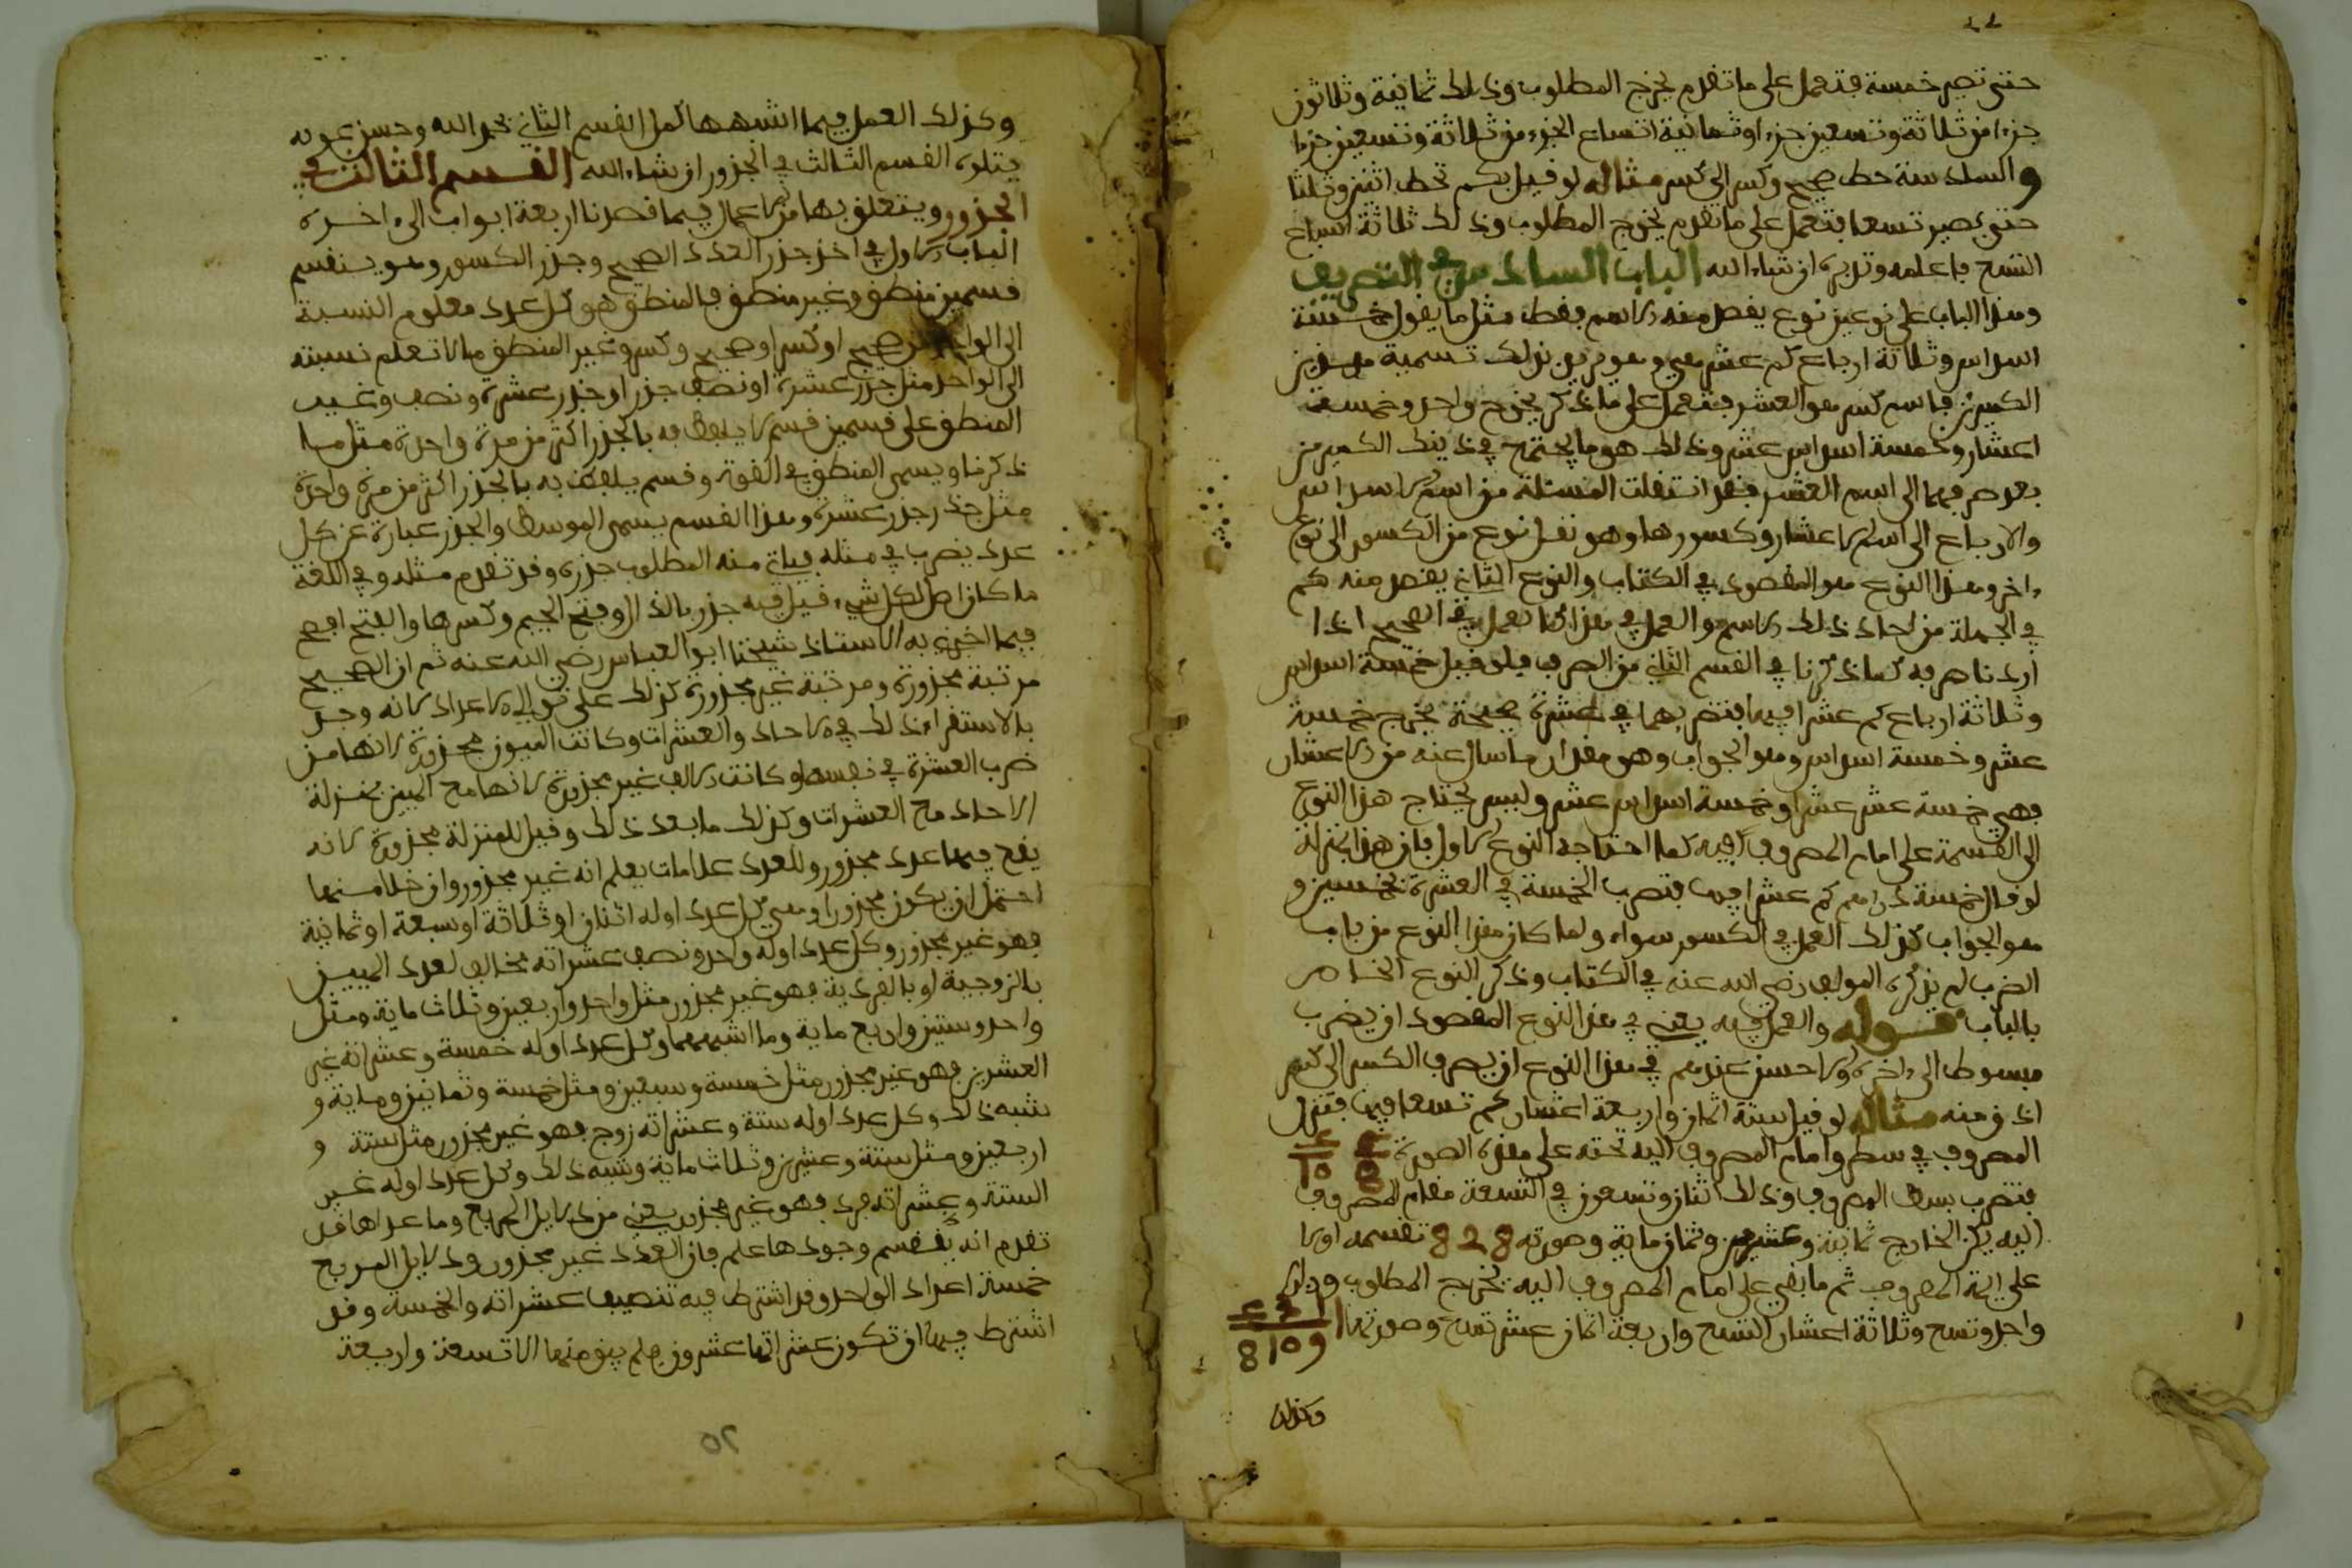 حتى تصير خمسة فتعمل على ما تقدم يخرج المطلوب وذلك ثمانية وثلاثون
جزءا من ثلاثة وتسعين جزءا وثمانية اتساع الجزء من ثلاثة وتسعين جزءا
والسادسة حط صحيح وكسر الى كسر مثاله لو قيل بكم تحط اثنين وثلثا
حتى يصير تسعا فتعمل على ما تقدم يخرج المطلوب وذلك ثلاثة اسباع
التسع فاعلمه وتدبره ان شاء الله الباب السادس في التصريف
وهذا الباب على نوعين نوع يقصد منه الاسم فقط مثل ما يقول خمسة
اسداس وثلاثة ارباع كم عشر هي وهو يريد بذلك تسمية هذين
الكسرين باسم كسر هو العشر فتعمل على ما ذكر يخرج واحد وخمسة
اعشار وخمسة اسداس عشر وذلك هو ما يجتمع في ذينك الكسرين
بعد صرفهما الى اسم العشر فقد انتقلت المسئلة من اسم الاسداس
والارباع الى اسم الاعشار وكسورها وهو نقل نوع من الكسور الى نوع
ءاخر وهذا النوع هو المقصود في الكتاب والنوع الثاني يقصد منه كم
في الجملة من احاد ذلك الاسم والعمل في هذا كما تعمل في الصحيح اذا
اردنا صرفه كما ذكرنا في القسم الثاني من الصرف فلو قيل خمسة اسداس
وثلاثة ارباع كم عشرا فيها فتضربهما في عشرة صحيحة يخرج خمسة
عشر وخمسة اسداس وهو الجواب وهو مقدار ما سال عنه من الاعشار
فهي خمسة عشر عشرا وخمسة اسداس عشر وليس يحتاج هذا النوع
الى القسمة على امام المصروف اليه كما احتاجه النوع الاول فان هذا بمنزلة
لو قال خمسة دراهم كم عشرا فيها فتضرب الخمسة في العشرة بخمسين و
هو الجواب كذلك العمل في الكسور سواء ولما كان هذا النوع من باب
الضرب لم يذكره المولف رضي الله عنه في الكتاب وذكر النوع الخاص
بالباب قوله والعمل فيه يعني في هذا النوع المقصود ان يضرب
مبسوط الى ءاخره والاحسن عندهم في هذا النوع ان يصرف الكسر الى كسر
ادق منه مثاله لو قيل ستة اثمان واربعة اعشار كم تسعا فيها فتنزل
المصروف في سطر وامام المصروف اليه تحته على هذه الصورة
فتضرب بسط المصروف وذلك اثنان وتسعون في التسعة مقام المصروف
اليه يكن الخارج ثمانية وعشرين وثمان ماية وصورته 828 تقسمه اولا
على ايمة المصروف ثم ما بقي على امام المصروف اليه يخرج المطلوب وذلك
واحد وتسع وثلاثة اعشار التسع واربعة اثمان عشر تسع وصورتها
8 10 9
وكذلك
وكذلك العمل فيما اشبهها كمل القسم الثاني بحمد الله وحسن عونه
يتلوه القسم الثالث في الجذور ان شاء الله القسم الثالث في
الجذور ويتعلق بها من الاعمال فيما قصدنا اربعة ابواب الى ءاخره
الباب الاول في اخذ جذر العدد الصحيح وجذر الكسور وهو ينقسم
قسمين منطق وغير منطق فالمنطق هو كل عدد معلوم النسبة
الى الواحد من صحيح او كسر او صحيح وكسر وغير المنطق ما لا تعلم نسبته
الى الواحد مثل جذر عشرة او نصف جذر او جذر عشرة ونصف وغير
المنطق على قسمين قسم لا يلفظ به بالجذر اكثر من مرة واحدة مثل ما
ذكرنا ويسمى المنطق في القوة وقسم يلفظ به بالجذر اكثر من مرة واحدة
مثل جذر جذر عشرة وهذا القسم يسمى الموسط والجذر عبارة عن كل
عدد يضرب في مثله فياتي منه المطلوب جذره وقد تقدم مثله وفي اللغة
ما كان اصل كل شيء قيل فيه جذر بالذال وفتح الجيم وكسرها والفتح افصح
فيما اخبرني به الاستاذ شيخنا ابو العباس رضي الله عنه ثم ان الصحيح
مرتبة مجذورة ومرتبة غير مجذورة كذلك على توالي الاعداد لانه وجد
بالاستقراء ذلك في الاحاد والعشرات وكانت الميون مجذورة لانها من
ضرب العشرة في نفسها وكانت الالاف غير مجذورة لانها مع الميين بمنزلة
الاحاد مع العشرات وكذلك ما بعد ذلك وقيل للمنزلة مجذورة لانه
يقع فيها عدد مجذور وللعدد علامات يعلم انه غير مجذور وان خلا منها
احتمل ان يكون مجذورا وهي كل عدد اوله اثنان او ثلاثة او سبعة او ثمانية
فهو غير مجذور وكل عدد اوله واحد ونصف عشراته مخالف لعدد الميين
بالزوجية او بالفردية فهو غير مجذور مثل واحد واربعين وثلاث ماية ومثل
واحد وستين واربع ماية وما اشبههما وكل عدد اوله خمسة وعشراته غير
العشرين فهو غير مجذور مثل خمسة وسبعين ومثل خمسة وثمانين وماية و
شبه ذلك وكل عدد اوله ستة وعشراته زوج فهو غير مجذور مثل ستة و
اربعين ومثل ستة وعشرين وثلاث ماية وشبه ذلك وكل عدد اوله غير
الستة وعشراته فرد فهو غير مجذور يعني من دلايل المربع وما عداها قد
تقدم انه وجودها علم بان العدد غير مجذور ودلايل المربع
خمسة اعداد الواحد وقد اشترط فيه تنصيف عشراته والخمسة وقد
اشترط فيها ان تكون عشراتها عشرون فلم يبق منها الا تسعة واربعة